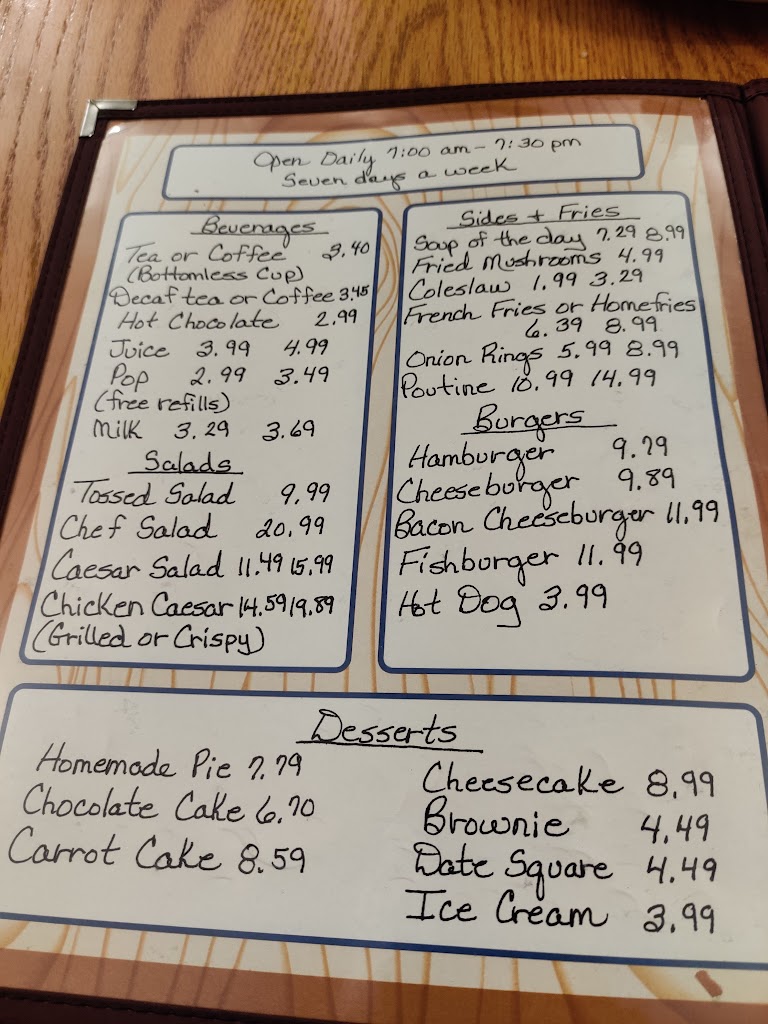 Open Daily 7:00 am - 7:30 pm
Seven days a week
Beverages
Tea or Coffee 3.40
(Bottomless Cup)
Decaf tea or Coffee 3.45
Hot Chocolate 2.99
Juice 3.99 4.99
Pop 2.99 3.49
(free refills)
Milk 3.29 3.69
Salads
Tossed Salad 9.99
Chef Salad 20.99
Caesar Salad 11.49 15.99
Chicken Caesar 14.59 19.89
(Grilled or Crispy)
Sides + Fries
Soup of the day 7.29 8.99
Fried Mushrooms 4.99
Coleslaw 1.99 3.29
French Fries or Homefries
6.39 8.99
Onion Rings 5.99 8.99
Poutine 10.99 14.99
Burgers
Hamburger 9.79
Cheeseburger 9.89
Bacon Cheeseburger 11.99
Fishburger 11.99
Hot Dog 3.99
Desserts
Homemade Pie 7.79
Chocolate Cake 6.70
Carrot Cake 8.59
Cheesecake 8.99
Brownie 4.49
Date Square 4.49
Ice Cream 3.99